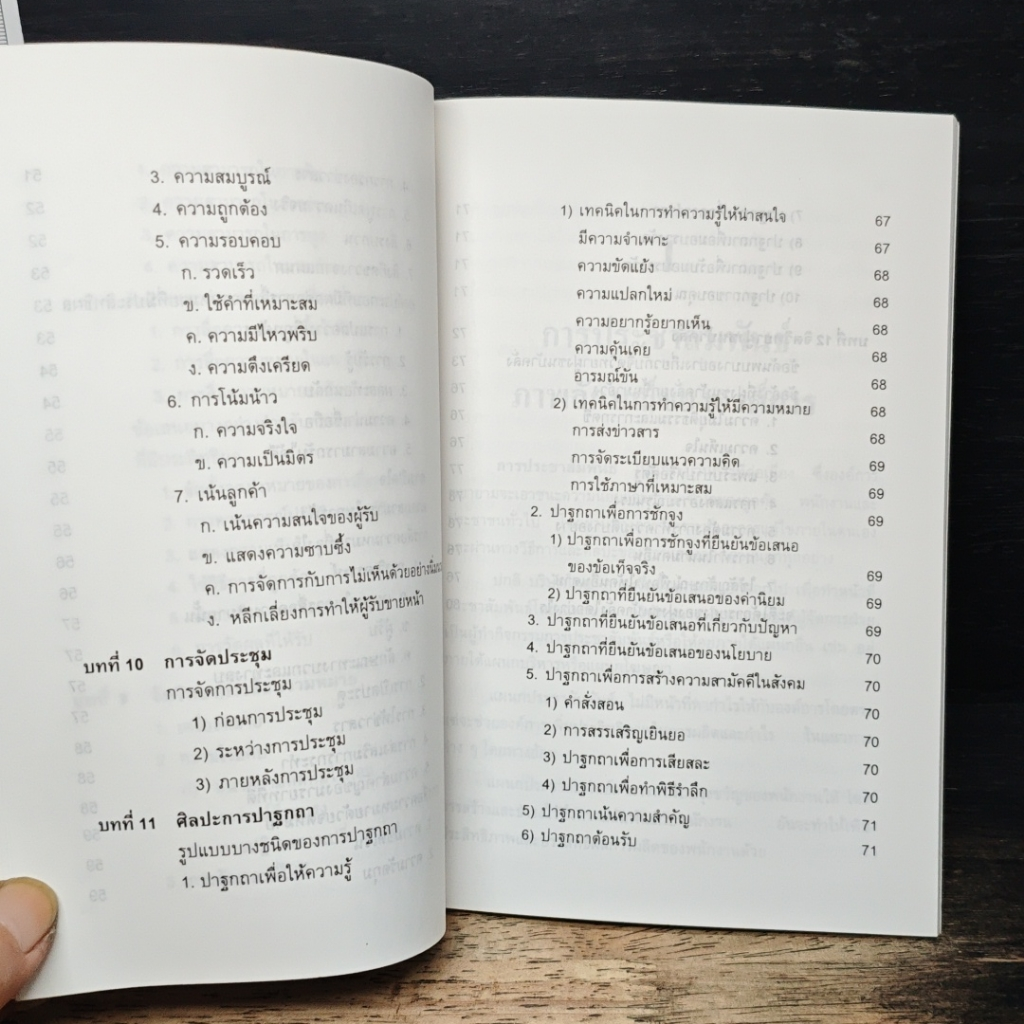 3. ความสมบูรณ์
4. ความถูกต้อง
5. ความรอบคอบ
ก. รวดเร็ว
ข. ใช้คำที่เหมาะสม
ค. ความมีไหวพริบ
ง. ความตึงเครียด
6. การโน้มน้าว
ก. ความจริงใจ
ข. ความเป็นมิตร
7. เน้นลูกค้า
ก. เน้นความสนใจของผู้รับ
ข. แสดงความซาบซึ้ง
ค. การจัดการกับการไม่เห็นด้วยอย่าง
ง. หลีกเลี่ยงการทำให้ผู้รับขายหน้า
บทที่ 10 การจัดประชุม
การจัดการประชุม
1) ก่อนการประชุม
2) ระหว่างการประชุม
3) ภายหลังการประชุม
บทที่ 11 ศิลปะการปาฐกถา
รูปแบบบางชนิดของการปาฐกถา
1. ปาฐกถาเพื่อให้ความรู้
1) เทคนิคในการทำความรู้ให้น่าสนใจ 67
มีความจำเพาะ 67
ความขัดแย้ง 68
ความแปลกใหม่ 68
ความอยากรู้อยากเห็น 68
ความคุ้นเคย 68
อารมณ์ขัน 68
2) เทคนิคในการทำความรู้ให้มีความหมาย 68
การส่งข่าวสาร 68
การจัดระเบียบแนวความคิด 69
การใช้ภาษาที่เหมาะสม 69
2. ปาฐกถาเพื่อการชักจูง 69
1) ปาฐกถาเพื่อการชักจูงที่ยืนยันข้อเสนอ
ของข้อเท็จจริง 69
2) ปาฐกถาที่ยืนยันข้อเสนอของค่านิยม 69
3. ปาฐกถาที่ยืนยันข้อเสนอที่เกี่ยวกับปัญหา 69
4. ปาฐกถาที่ยืนยันข้อเสนอของนโยบาย 70
5. ปาฐกถาเพื่อการสร้างความสามัคคีในสังคม 70
1) คำสั่งสอน 70
2) การสรรเสริญเยินยอ 70
3) ปาฐกถาเพื่อการเสียสละ 70
4) ปาฐกถาเพื่อทำพิธีรำลึก 70
5) ปาฐกถาเน้นความสำคัญ 71
6) ปาฐกถาต้อนรับ 71